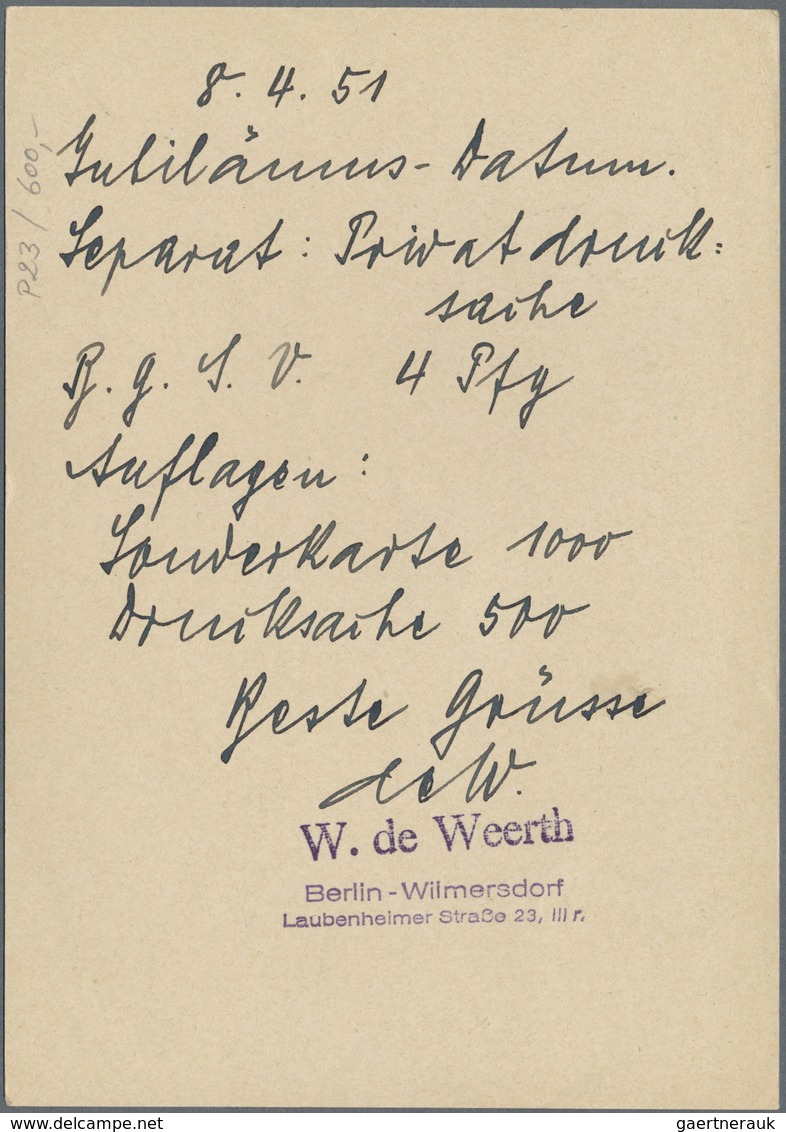 8. 4. 51
Jubiläums-Datum.
Separat: Privatdruck:
sache
B. g. S. V. 4 Pfg
Auflagen:
Sonderkarte 1000
Drucksache 500
Beste Grüsse
deW.
W. de Weerth
Berlin-Wilmersdorf
Laubenheimer Straße 23, III r.
P23/600,-
gaertnerauk